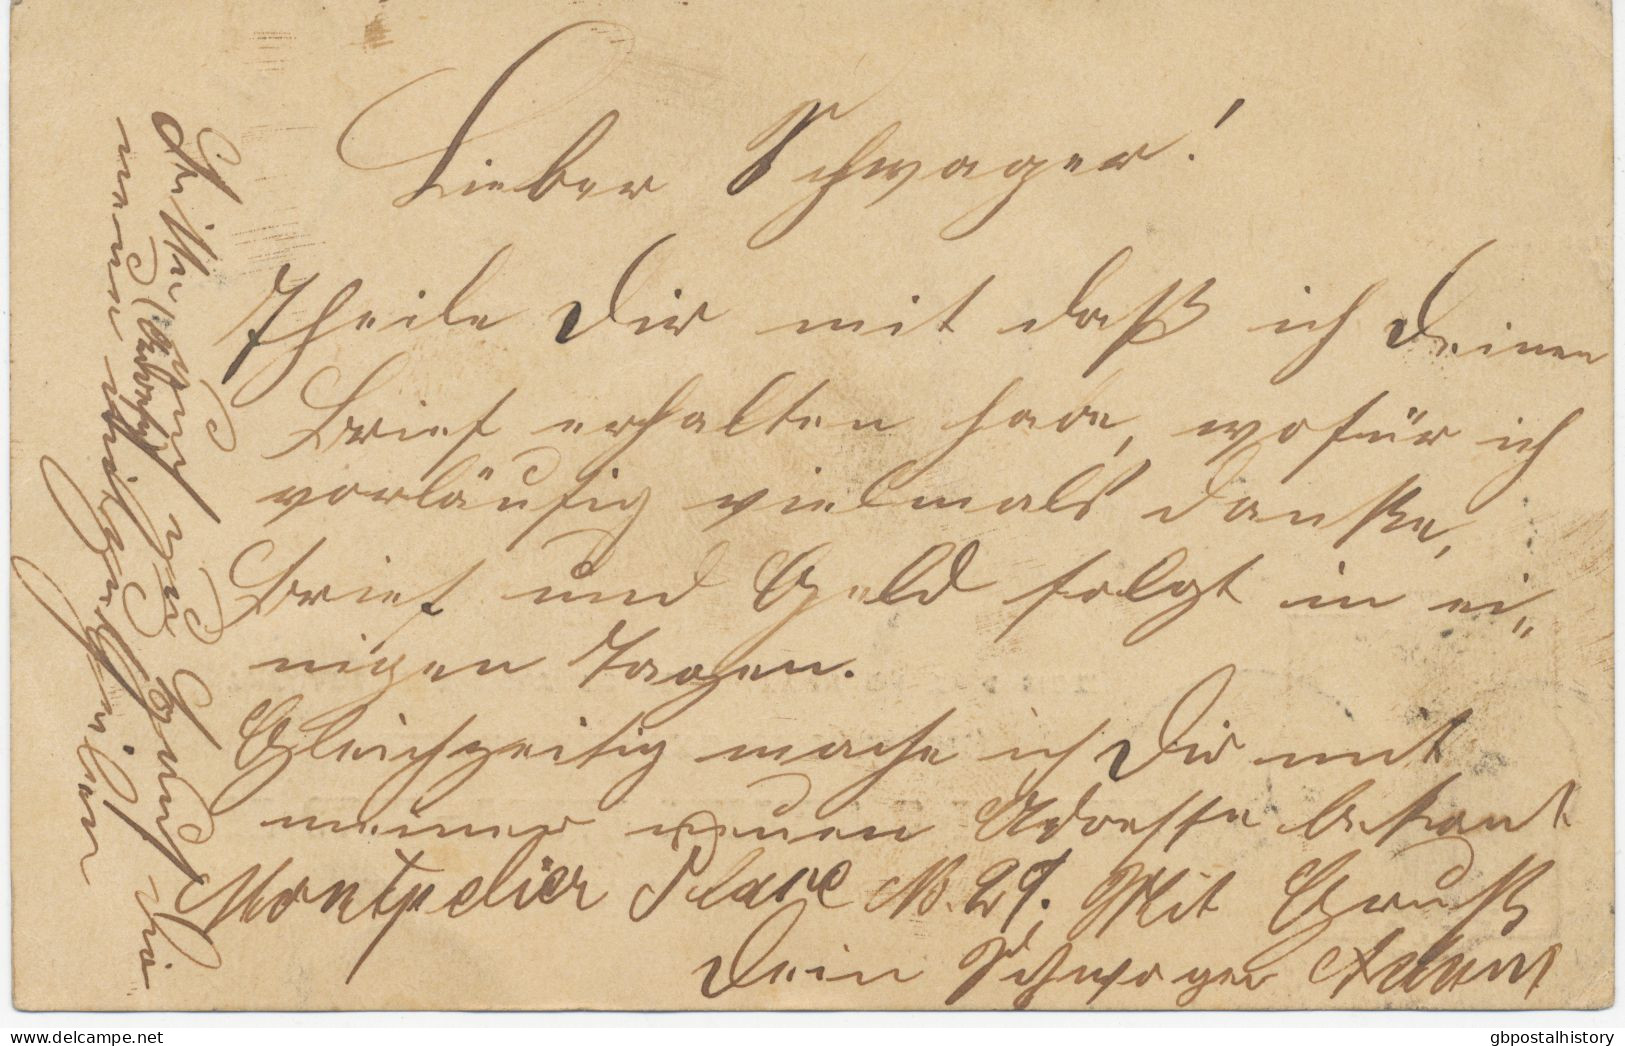 Lieber Schwager!
Theile Dir mit daß ich Deinen
Brief erhalten habe, wofür ich
vorläufig vielmals danke,
Brief und Geld folgt in ei„
nigen Tagen.
Gleichzeitig mache ich Dir mit
meiner neuen Adresse bekant
Montpelier Place N. 29. Mit Gruß
Dein Schwager Adam
Bitte Gruß zu und
mitzutheilen
gbpostalhistory